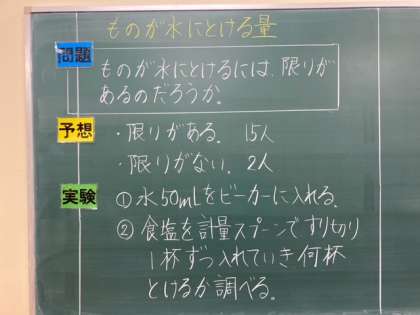 ものが水にとける量
問題
ものが水にとけるには、限りが
あるのだろうか。
予想
・限りがある。 15人
・限りがない。 2人
実験
① 水50mLをビーカーに入れる。
② 食塩を計量スプーンですりきり
1杯ずつ入れていき何杯
とけるか調べる。